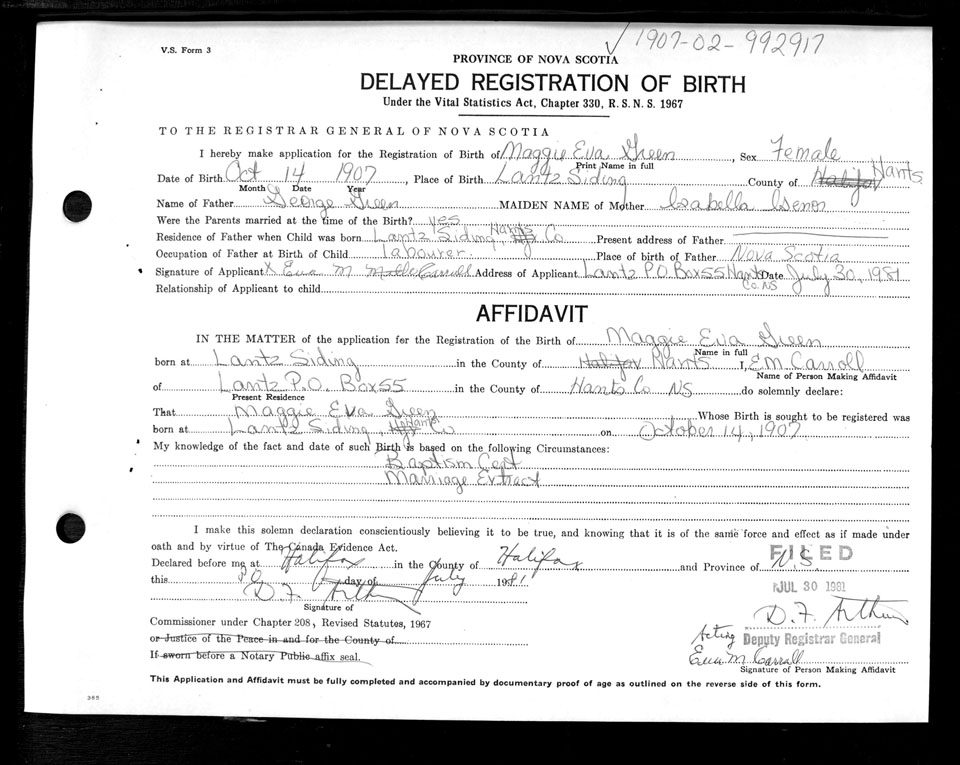 V.S. Form 3
✓ 1907-02-992917
PROVINCE OF NOVA SCOTIA
DELAYED REGISTRATION OF BIRTH
Under the Vital Statistics Act, Chapter 330, R. S. N. S. 1967
TO THE REGISTRAR GENERAL OF NOVA SCOTIA
I hereby make application for the Registration of Birth of Maggie Eva Green, Sex Female
Print Name in full
Date of Birth Oct 14 1907, Place of Birth Lantz Siding County of Halifax Hants
Month Date Year
Name of Father George Green MAIDEN NAME of Mother Isabella
Were the Parents married at the time of Birth? yes
Residence of Father when Child was born Lantz Siding Hants Co Present address of Father
Occupation of Father at Birth of Child labourer. Place of birth of Father Nova Scotia
Signature of Applicant X Eva M Carroll Address of Applicant Lantz P.O. Box 55 Hants Co. NS Date July 30, 1981
Relationship of Applicant to child
AFFIDAVIT
IN THE MATTER of the application for the Registration of the Birth of Maggie Eva Green
Name in full
born at Lantz Siding in the County of Halifax Hants I, E.M. Carroll
Name of Person Making Affidavit
of Lantz P.O. Box 55 in the County of Hants Co NS do solemnly declare:
Present Residence
That Maggie Eva Green Whose Birth is sought to be registered was
born at Lantz Siding, Hants Co on October 14, 1907
My knowledge of the fact and date of such Birth is based on the following Circumstances:
Baptism Cert
Marriage Extract
I make this solemn declaration conscientiously believing it to be true, and knowing that it is of the same force and effect as if made under
oath and by virtue of The Canada Evidence Act.
Declared before me at Halifax in the County of Halifax and Province of N.S.
FILED
this 30 day of July 1981
JUL 30 1981
D. F. Arthur
Signature of
D. F. Arthur
Commissioner under Chapter 208, Revised Statutes, 1967
Acting Deputy Registrar General
or Justice of the Peace in and for the County of
Eva M Carroll
If sworn before a Notary Public affix seal.
Signature of Person Making Affidavit
This Application and Affidavit must be fully completed and accompanied by documentary proof of age as outlined on the reverse side of this form.
365